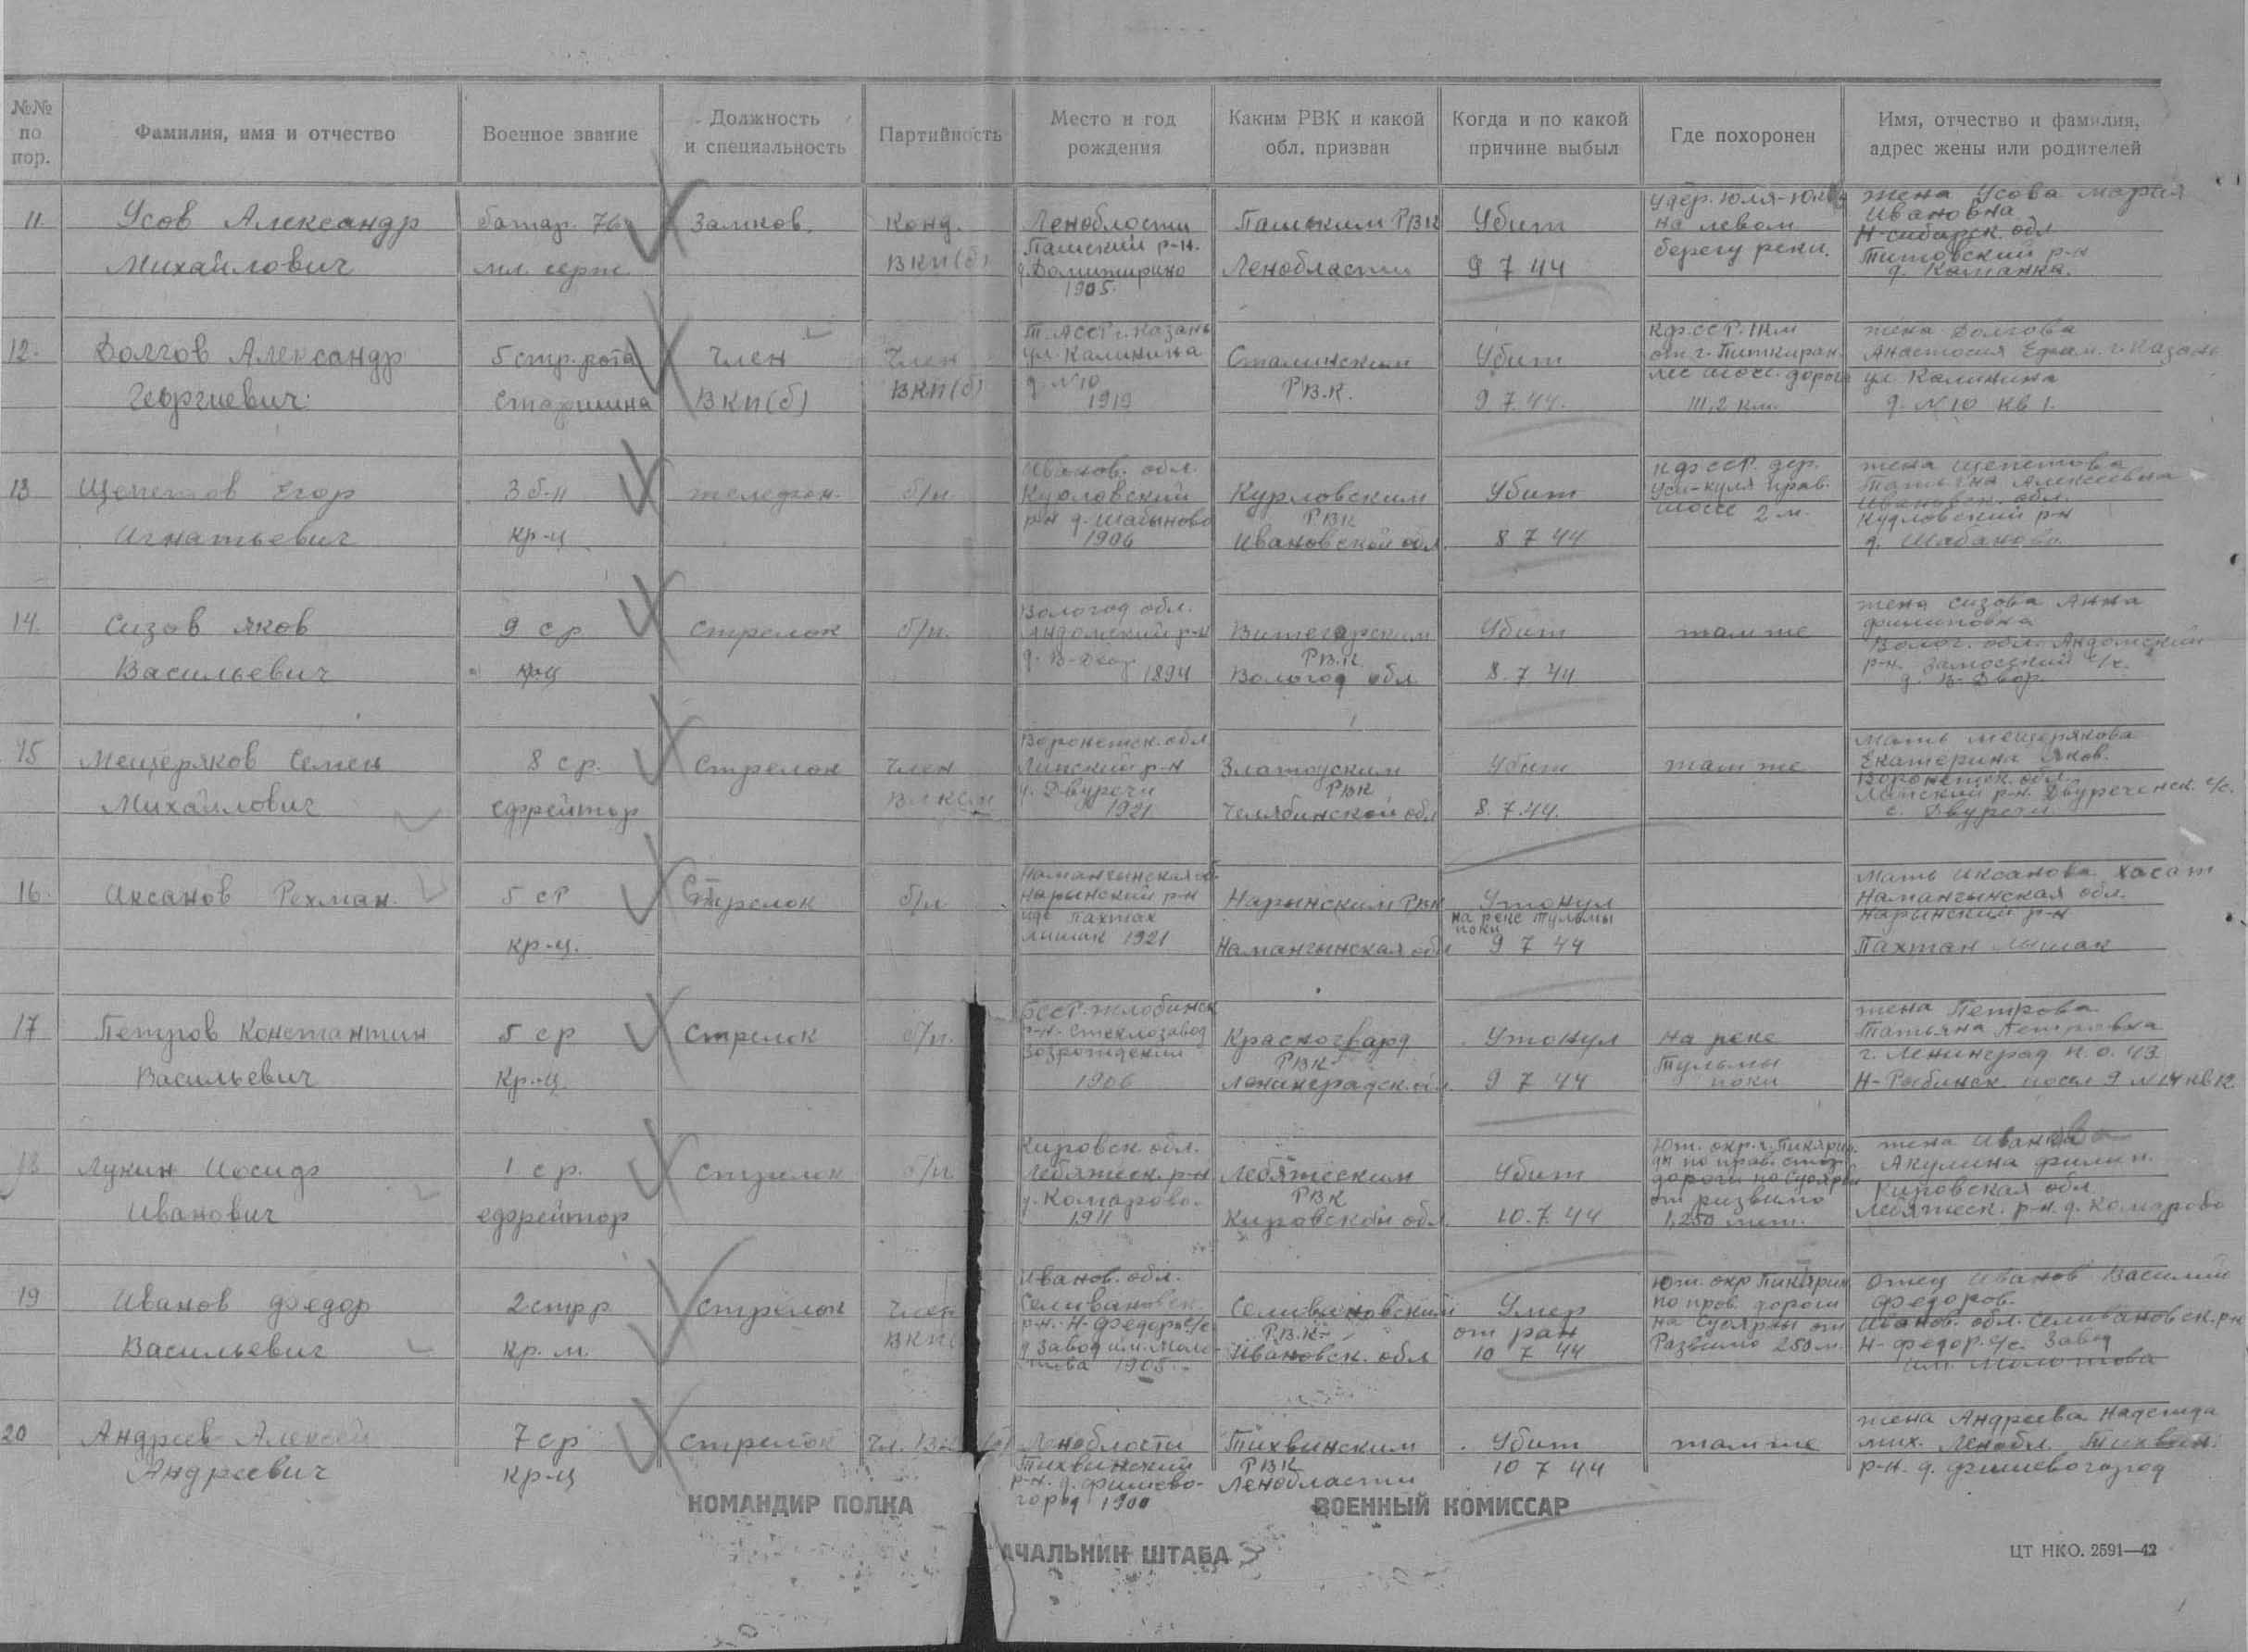 №№ по пор.
Фамилия, имя и отчество
Военное звание
Должность и специальность
Партийность
Место и год рождения
Каким РВК и какой обл. призван
Когда и по какой причине выбыл
Где похоронен
Имя, отчество и фамилия, адрес жены или родителей
11.
Усов Александр
Михайлович
батар. 76
мл. серж
Замков.
Конд.
ВКП(б)
Ленобласти
Пашский р-н.
1905.
Пашским РВК
Ленобласти
Убит
9 7 44
на левом
берегу реки.
жена Усова Мария
Ивановна
Н-сибирск. обл
Титовский р-н
д. Катанка.
12.
Долгов Александр
Георгиевич
5 стр. рота
Старшина
Член
ВКП(б)
Член
ВКП(б)
Т.АССР г. Казань
ул. Калинина
д N 10
1919
Сталинским
РВ.К.
Убит
9.7.44.
Кф.ССР. 1км
от г. Питкиран.
лес шосс. дорога
жена Долгова
Анастасия Ефим. г. Казань
ул Калинина
д. N 10 кв 1.
13
Щепетов Егор
Игнатьевич
3 б-н
кр-ц
телефон.
б/п
Иванов. обл.
Курловский
р-н д. Шабыново
1906
Курловским
РВК
Ивановской обл.
Убит
8 7 44
кфССР. дер.
Уси-куля прав.
шоссе 2 м.
жена Щепетова
Татьяна Алексеевна
Ивановск. обл.
Кудловский р-н
д. Шабаново.
14.
Сизов Яков
Васильевич
9 ср
кр-ц
Стрелок
б/п.
Вологод обл.
Андомский р-н
1894
Витегорским
РВ.К
Вологод обл
Убит
8. 7 44
там же
жена Сизова Анна
Филиповна
Волог. обл. Андомский
р-н. Замосский с/с.
д. В-Двор.
15
Мещеряков Семен
Михайлович
8 ср.
ефрейтор
Стрелок
Член
ВЛКСМ
Воронежск. обл
Липский р-н
с. Двуречи
1921.
Златоуским
РВК
Челябинской обл
Убит
8. 7.44.
там же
Мать Мещерякова
Екатерина Яков.
Воронежск. обл.
Липский р-н. Двуреченск. с/с.
с. Двуречи
16.
Иксанов Рехман.
5 ср
кр-ц.
Стрелок
б/п
Намангынская об.
Нарынский р-н
Пахтах
лышак 1921
Нарынским РВК
Намангынская обл
Утонул
на реке Тульмы
поки
9 7 44
Мать Иксанова Хасат
Намангынская обл.
Нарынский р-н
Пахтан лышак
17
Петров Константин
Васильевич
5 ср
Кр-ц
Стрелок
б/п.
БССР. Жлобинск
р-н. Стеклозавод
Возрождении
1906
Красногвард
РВК
Ленинградск. обл.
Утонул
9 7 44
На реке
Тульмы
поки
жена Петрова
Татьяна Петровна
г. Ленинград п. о. 43
Н-Рыбинск. посел 9 N 14 кв 12.
18
Лукин Иосиф
Иванович
1 ср.
ефрейтор
Стрелок
б/п
Кировск. обл.
Лебяжеск. р-н
д. Комарово.
1911
Лебяжеским
РВК
Кировской обл.
Убит
10. 7. 44
дороги на Суоярви
от развилю
1,250 мет.
жена Иванова
Акулина Филип.
Кировская обл
Лебяжеск. р-н. д. Комарово
19
Иванов Федор
Васильевич
2 стр р
кр. м.
Стрелок
Член
ВКП(
Иванов. обл.
Селивановск.
р-н. Н-Федор. с/с
д Завод им. Моло-
това 1905.
Селивановским
Р.В.К
Ивановск. обл
Умер
от ран
10 7 44
по прав. дороги
на Суоярви от
Развилю 250 м.
Отец Иванов Василий
Федоров.
Иванов. обл. Селивановск. р-н
Н-Федор. с/с. Завод
им. Молотова
20
Андреев Алексей
Андреевич
7 ср
кр-ц
Стрелок
Ленобласти
Тихвинский
р-н. д. Фишево-
город 1900
Тихвинским
РВК
Ленобласти
Убит
10 7 44
там же
жена Андреева Надежда
мих. Ленобл. Тихвин.
р-н. д. Фишевогород
КОМАНДИР ПОЛКА
ВОЕННЫЙ КОМИССАР
АЧАЛЬНИК ШТАБА
ЦТ НКО. 2591—42